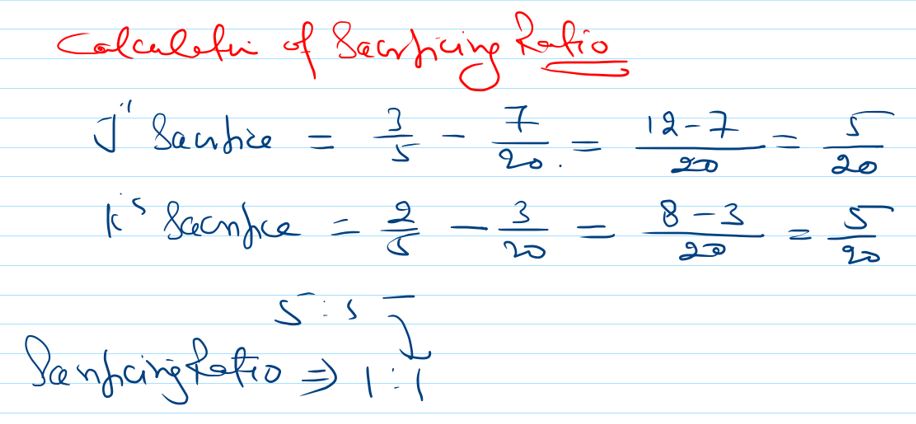 Calculation of Sacrificing Ratio
J's Sacrifice = 3/5 - 7/20 = 12-7/20 = 5/20
K's Sacrifice = 2/5 - 3/20 = 8-3/20 = 5/20
5 : 5
Sacrificing Ratio ⇒ 1 : 1